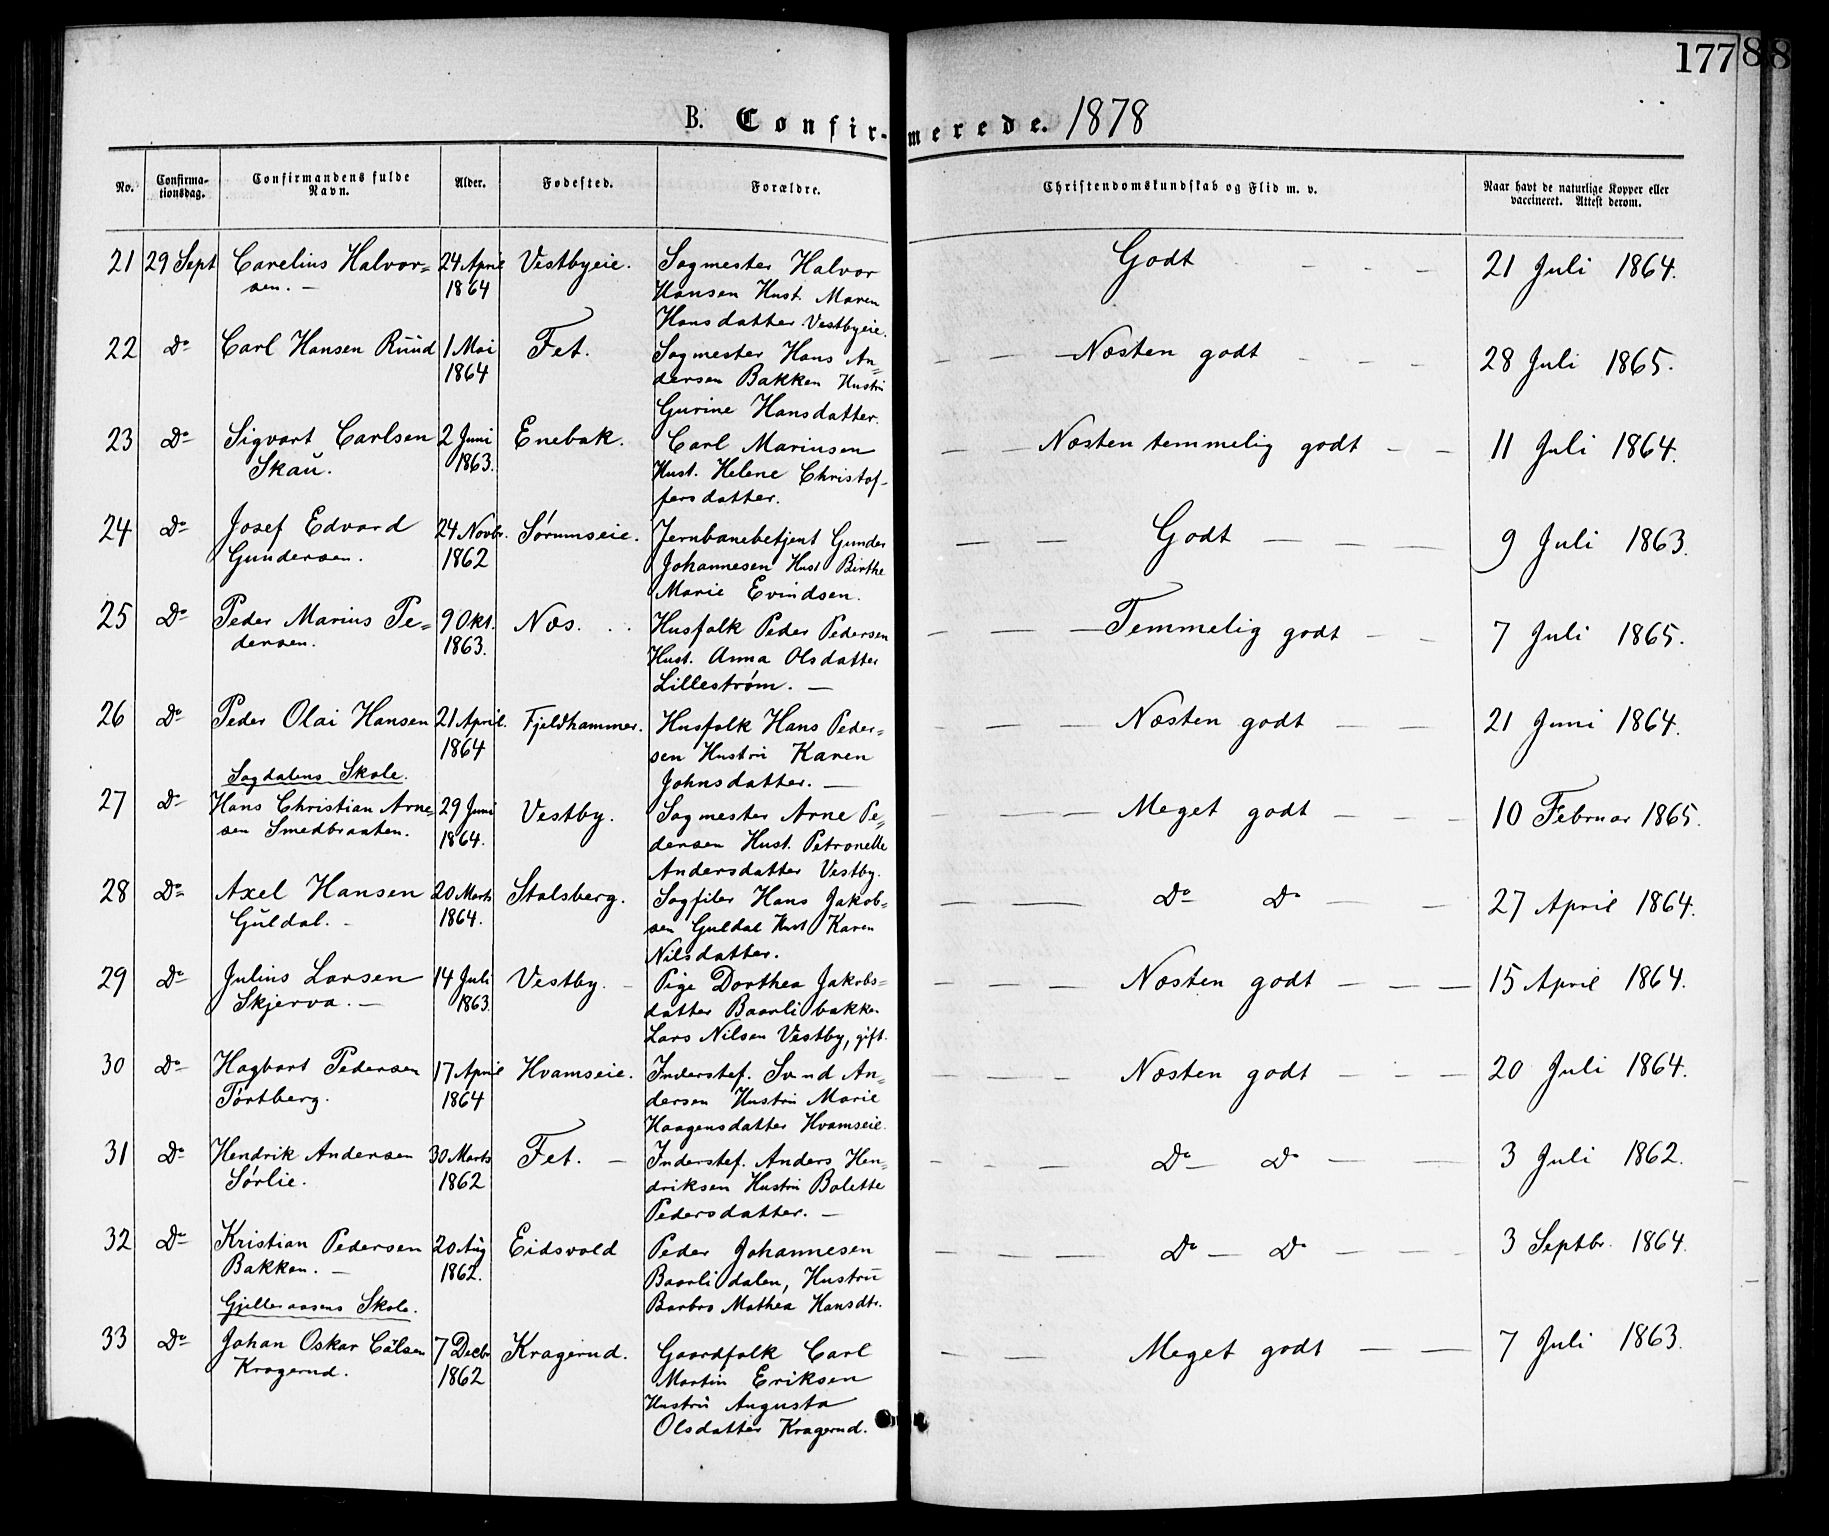 177 88
B. Confirmerede. 1878
No. Confirmationsdag. Confirmandens fulde Navn. Alder. Fødested. Forældre. Christendomskundskab og Flid m. v. Naar havt de naturlige Kopper eller vaccineret. Attest derom.
21 29 Sept Carelius Halvor= 24 April Vestbyeie. Sagmester Halvor Godt 21 Juli 1864.
sen. 1864 Hansen Hust. Maren
Hansdatter Vestbyeie.
22 Do Carl Hansen Ruud 1 Mai Fet. Sagmester Hans An= Næsten godt 28 Juli 1865.
1864 dersen Bakken Hustru
Gurine Hansdatter.
23 Do Sigvart Carlsen 2 Juni Enebak. Carl Mariusen Næsten temmelig godt 11 Juli 1864.
Skau. 1863. Hust. Helene Christof-
fersdatter.
24 Do Josef Edvard 24 Novbr. Sørumseie. Jernbanebetjent Gunder Godt 9 Juli 1863.
Gundersen. 1862 Johannesen Hust Birthe
Marie Evindsen.
25 Do Peder Marius Pe= 9 Okt. Næs. Husfolk Peder Pedersen Temmelig godt 7 Juli 1865.
dersen. 1863. Hust. Anna Olsdatter
Lillestrøm.
26 Do Peder Olai Hansen 21 April. Fjeldhammer. Husfolk Hans Peder= Næsten godt 21 Juni 1864.
1864 sen Hustru Karen
Sagdalens Skole. Johnsdatter.
27 Do Hans Christian Arne= 29 Juni Vestby. Sagmester Arne Pe= Meget godt 10 Februar 1865.
sen Smedbraaten. 1864. dersen Hust. Petronelle
Andersdatter Vestby.
28 Do Axel Hansen 20 Marts Stalsberg. Sagfiler Hans Jakob= Do Do 27 April 1864.
Guldal. 1864. sen Guldal Hust Karen
Nilsdatter.
29 Do Julius Larsen 14 Juli Vestby. Pige Dorthea Jakobs= Næsten godt 15 April 1864.
Skjerva. 1863. datter Baarlibakken
Lars Nilsen Vestby, gift.
30 Do Hagbart Pedersen 17 April Hvamseie. Inderstef. Svend An= Næsten godt 20 Juli 1864.
Tørtberg. 1864 dersen Hustru Marie
Haagensdatter Hvamseie.
31 Do Hendrik Andersen 30 Marts Fet. Inderstef. Anders Hen= Do Do 3 Juli 1862.
Sørlie. 1862 driksen Hustru Bolette
Pedersdatter.
32 Do Kristian Pedersen 20 Aug Eidsvold Peder Johannesen Do Do 3 Septbr. 1864.
Bakken. 1862. Baarlidalen, Hustru
Gjelleraasens Skole. Barbro Mathea Hansdtr.
33 Do Johan Oskar Calsen 7 Decbr Kragerud. Gaardfolk Carl Meget godt 7 Juli 1863.
Kragerud. 1862 Martin Eriksen
Hustru Augusta
Olsdatter Kragerud.